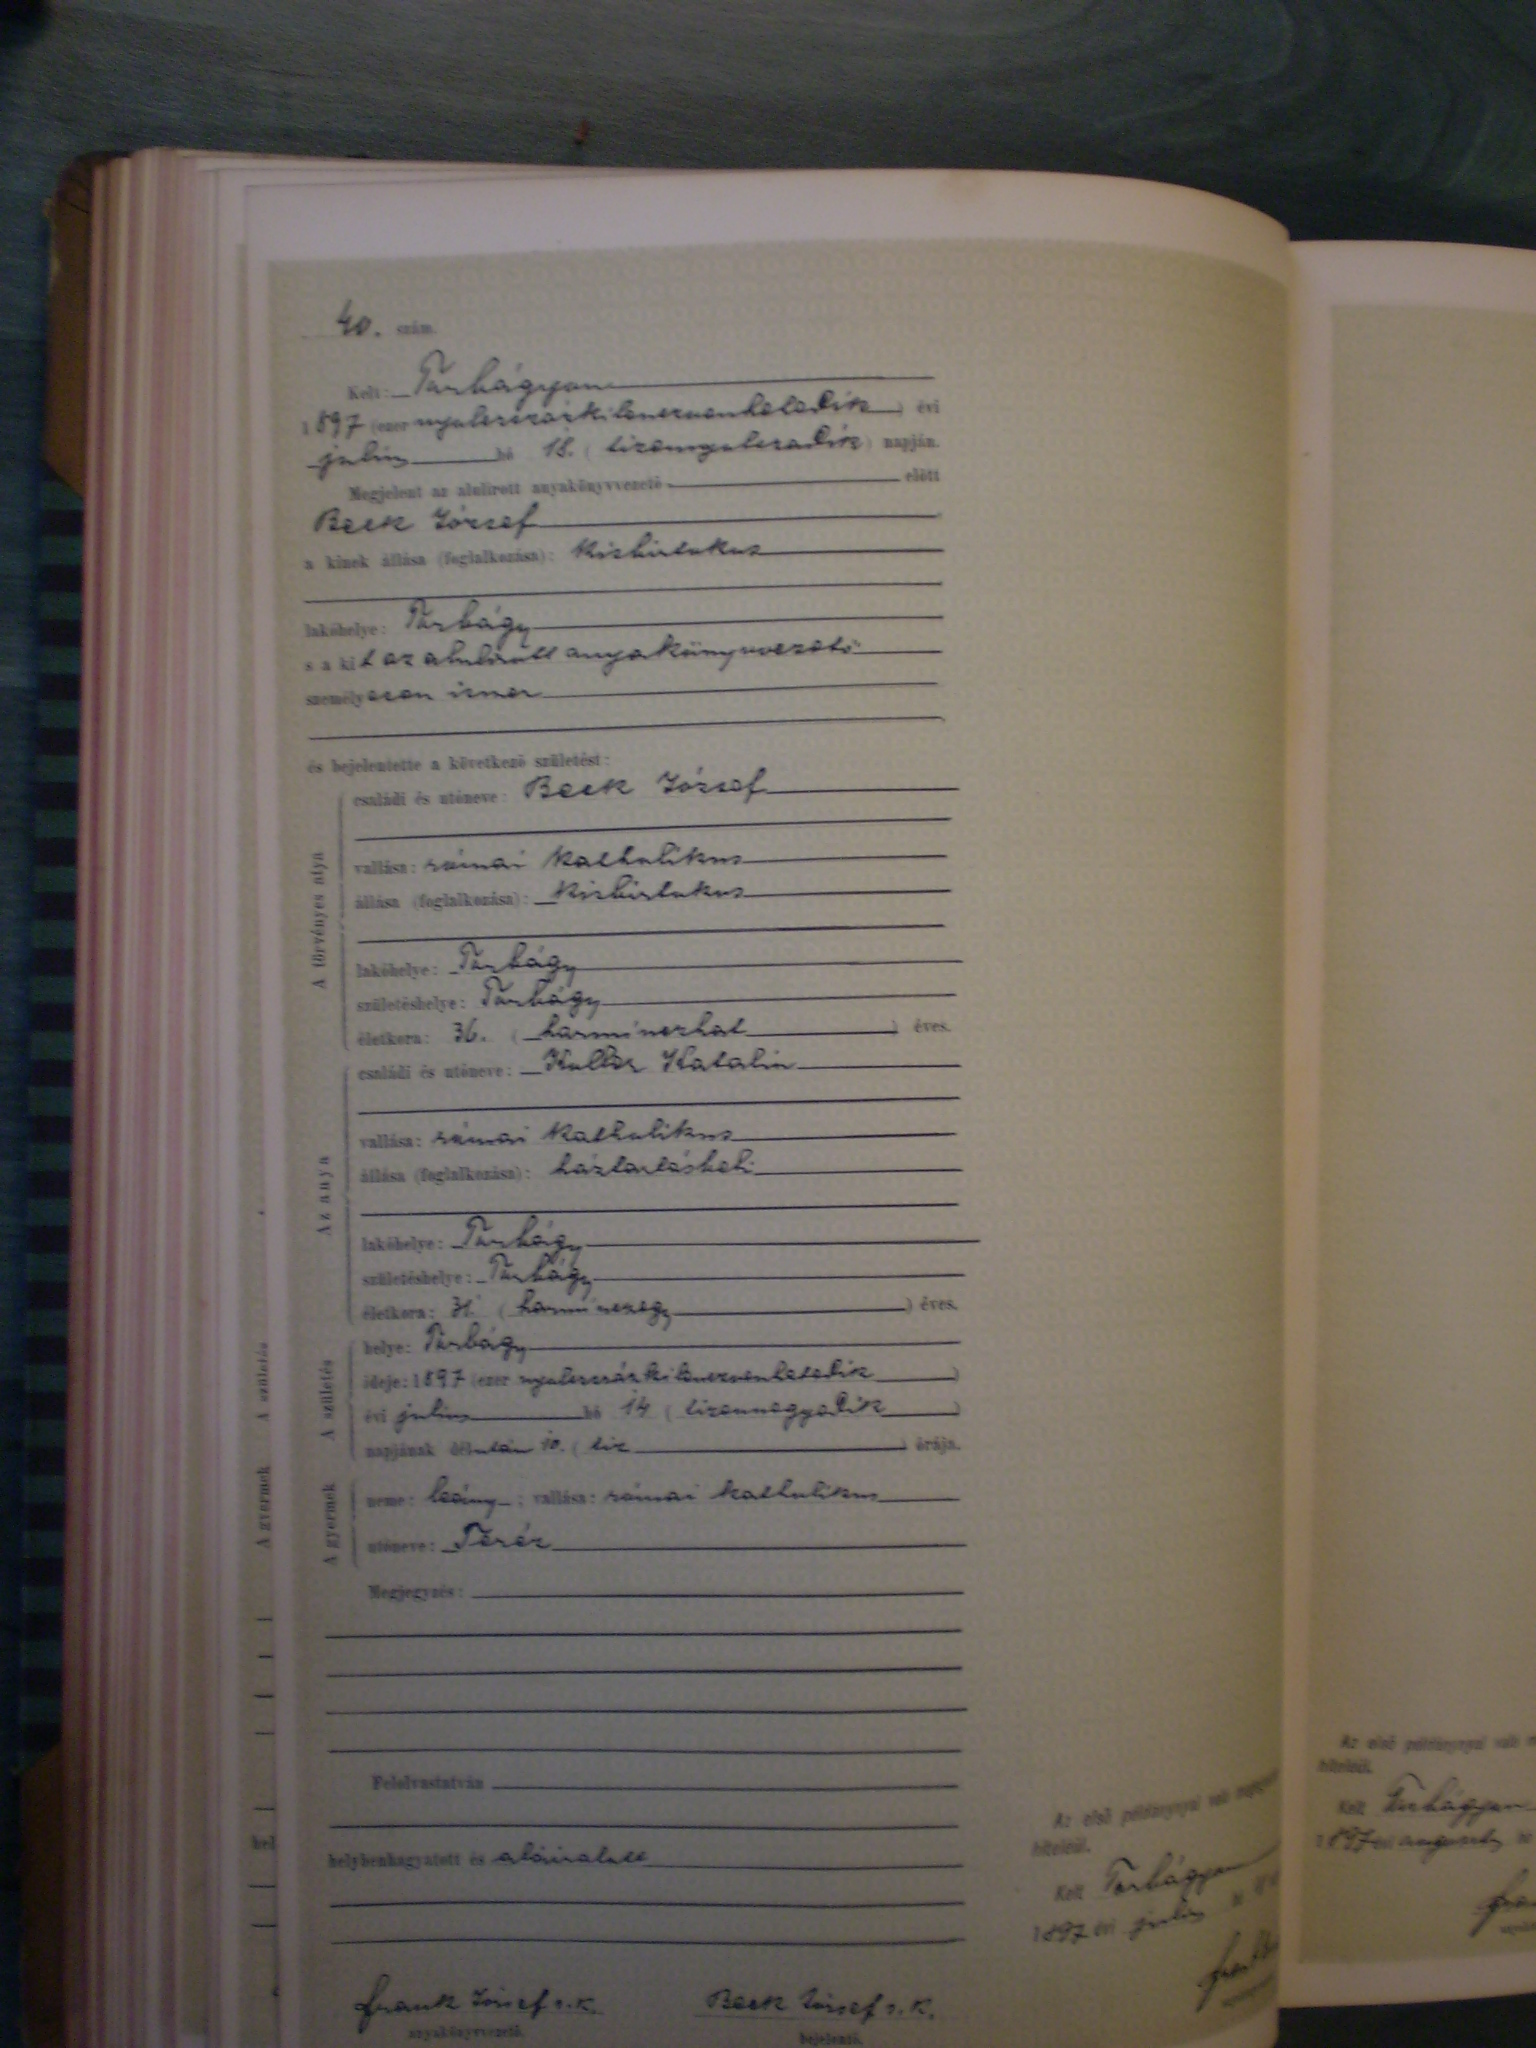 40. szám.
Kelt: Torbágyon
1897 (ezer nyolcszázkilenczvenhetedik) évi
julius hó 18. (tizennyolczadik) napján.
Megjelent az alulirott anyakönyvvezető előtt
Beck József
a kinek állása (foglalkozása): kisbirtokos
lakóhelye: Torbágy
s a kit az alulirott anyakönyvvezető
személyesen ismer
és bejelentette a következő születést:
A törvényes atya
családi és utóneve: Beck József
vallása: római katholikus
állása (foglalkozása): kisbirtokos
lakóhelye: Torbágy
születéshelye: Torbágy
életkora: 36. (harminczhat) éves.
Az anya
családi és utóneve: Katalin
vallása: római katholikus
állása (foglalkozása): háztartásbeli
lakóhelye: Torbágy
születéshelye: Torbágy
életkora: 31. (harminczegy) éves.
A születés
helye: Torbágy
ideje: 1897 (ezer nyolczszázkilenczvenhetedik)
évi julius hó 14 (tizennegyedik)
napjának délután 10. (tiz) órája.
A gyermek
neme: leány; vallása: római katholikus
utóneve: Teréz
Megjegyzés:
Felolvastatván
helybenhagyatott és aláiratott
Frank József s. k. Beck József s. k.
anyakönyvvezető. bejelentő.
Az első példánynyal való
hiteléül.
Kelt Torbágyon
1897 évi julius hó
A születés
A gyermek
hel
Az első példánynyal való
hiteléül.
Kelt Torbágyon
1897 évi